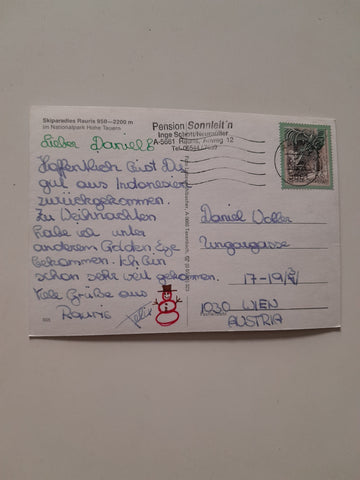 Skiparadies Rauris 950—2200 m
im Nationalpark Hohe Tauern
Pension Sonnleit'n
A-5661 Rauris,
12
Tel.
Lieber Daniel!
Hoffentlich bist Du
gut aus Indonesien
zurückgekommen.
Zu Weihnachten
habe ich unter
anderem Golden Eye
bekommen. Ich bin
schon sehr weit gekommen.
Viele Grüße aus
Rauris
Felix
Daniel
Ungargasse
17-19/
1030 WIEN
AUSTRIA